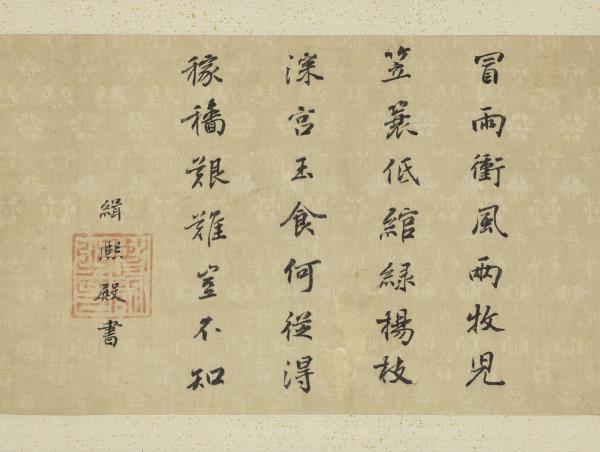 冒雨衝風兩牧児
笠蓑低綰緑楊枝
深宮玉食何從得
稼穡艱難豈不知
緝熙殿書